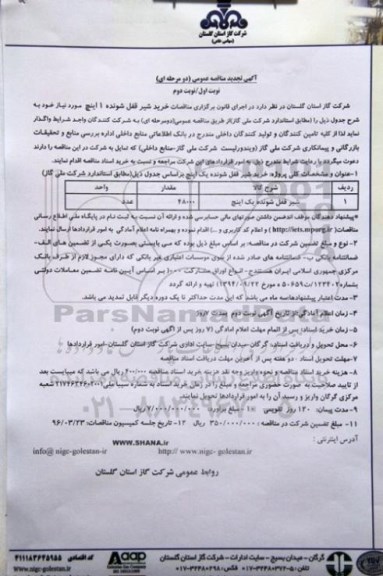 شرکت گاز استان گلستان
(سهامی خاص)
آگهی تجدید مناقصه عمومی (دو مرحله ای)
نوبت اول/نوبت دوم
شرکت گاز استان گلستان در نظر دارد در اجرای قانون برگزاری مناقصات خرید شیر قفل شونده ۱ اینچ مورد نیاز خود به
شرح جدول ذیل را (مطابق استاندارد شرکت ملی گاز) از طریق مناقصه عمومی (دومرحله ای) به شرکت کنندگان واجد شرایط واگذار
نماید لذا از کلیه تامین کنندگان و تولید کنندگان داخلی مندرج در بانک اطلاعاتی منابع داخلی اداره بررسی منابع و تحقیقات
بازرگانی و پیمانکاری شرکت ملی گاز (ویندورلیست شرکت ملی گاز-منابع داخلی) که تمایل به شرکت در این مناقصه را دارند
دعوت میگردد با رعایت شرایط مندرج ذیل، به امور قراردادهای این شرکت مراجعه و نسبت به خرید اسناد مناقصه اقدام نمایند.
۱-عنوان و مشخصات کلی پروژه: خرید شیر قفل شونده یک اینچ براساس جدول ذیل (مطابق استاندارد شرکت ملی گاز)
ردیف شرح کالا مقدار واحد
۱ شیر قفل شونده یک اینچ ۲۸۰۰۰ عدد
*پیشنهاد دهندگان موظف اندضمن داشتن صورتهای مالی حسابرسی شده و ارائه آن نسبت به ثبت نام در پایگاه ملی اطلاع رسانی
مناقصات (http://iets.mporg.ir) و اعلام کد کاربری و ... اقدام نموده و بهمراه نامه اعلام آمادگی به امور قراردادها ارسال نمایند.
۲- نوع و مبلغ تضمین شرکت در مناقصه: بر اساس مبلغ ذیل بوده که می بایستی بصورت یکی از تضمین های الف-
ضمانتنامه بانکی ب- ضمانتنامه های صادر شده از سوی موسسات اعتباری غیر بانکی که دارای مجوز لازم از طرف بانک
مرکزی جمهوری اسلامی ایران هستند
۳-مدت اعتبار پیشنهادهاسه ماه می باشد که این مدت حداکثر تا یک دوره دیگر قابل تمدید می باشد.
۴-زمان اعلام آمادگی: از تاریخ آگهی نوبت دوم بمدت ۷ روز
۵-زمان خرید اسناد: پس از اتمام مهلت اعلام امادگی (۷ روز پس از آگهی نوبت دوم)
۶-محل تحویل و دریافت اسناد: گرگان-میدان بسیج-سایت اداری شرکت گاز استان گلستان-امور قراردادها
۷-مهلت تحویل اسناد: دو هفته پس از آخرین مهلت دریافت اسناد مناقصه
۸- هزینه خرید اسناد مناقصه و نحوه واریز وجه نقد
از تایید صلاحیت به صورت حضوری مراجعه و مبلغ را در زمان خرید اسناد به شماره سیبا ملی
مرکزی گرگان واریز و رسید آن را به امور قراردادها تحویل نمایند.
۹-مدت پیمان: ۱۲۰ روز تقویمی ۱۰- مبلغ برآورد: ۷/۰۰۰/۰۰۰/۰۰۰ ریال
۱۱- مبلغ تضمین شرکت در مناقصه: ۳۵۰/۰۰۰/۰۰۰ ریال ۱۲- تاریخ جلسه کمیسیون مناقصات: ۹۶/۰۳/۲۳
آدرس اینترنتی: WWW.SHANA.ir
http:// nigc- golestan-ir info@ nigc- golestan-ir
روابط عمومی شرکت گاز استان گلستان
ParsNamadData
گرگان - میدان بسیج - سایت ادارات - شرکت گاز استان گلستان